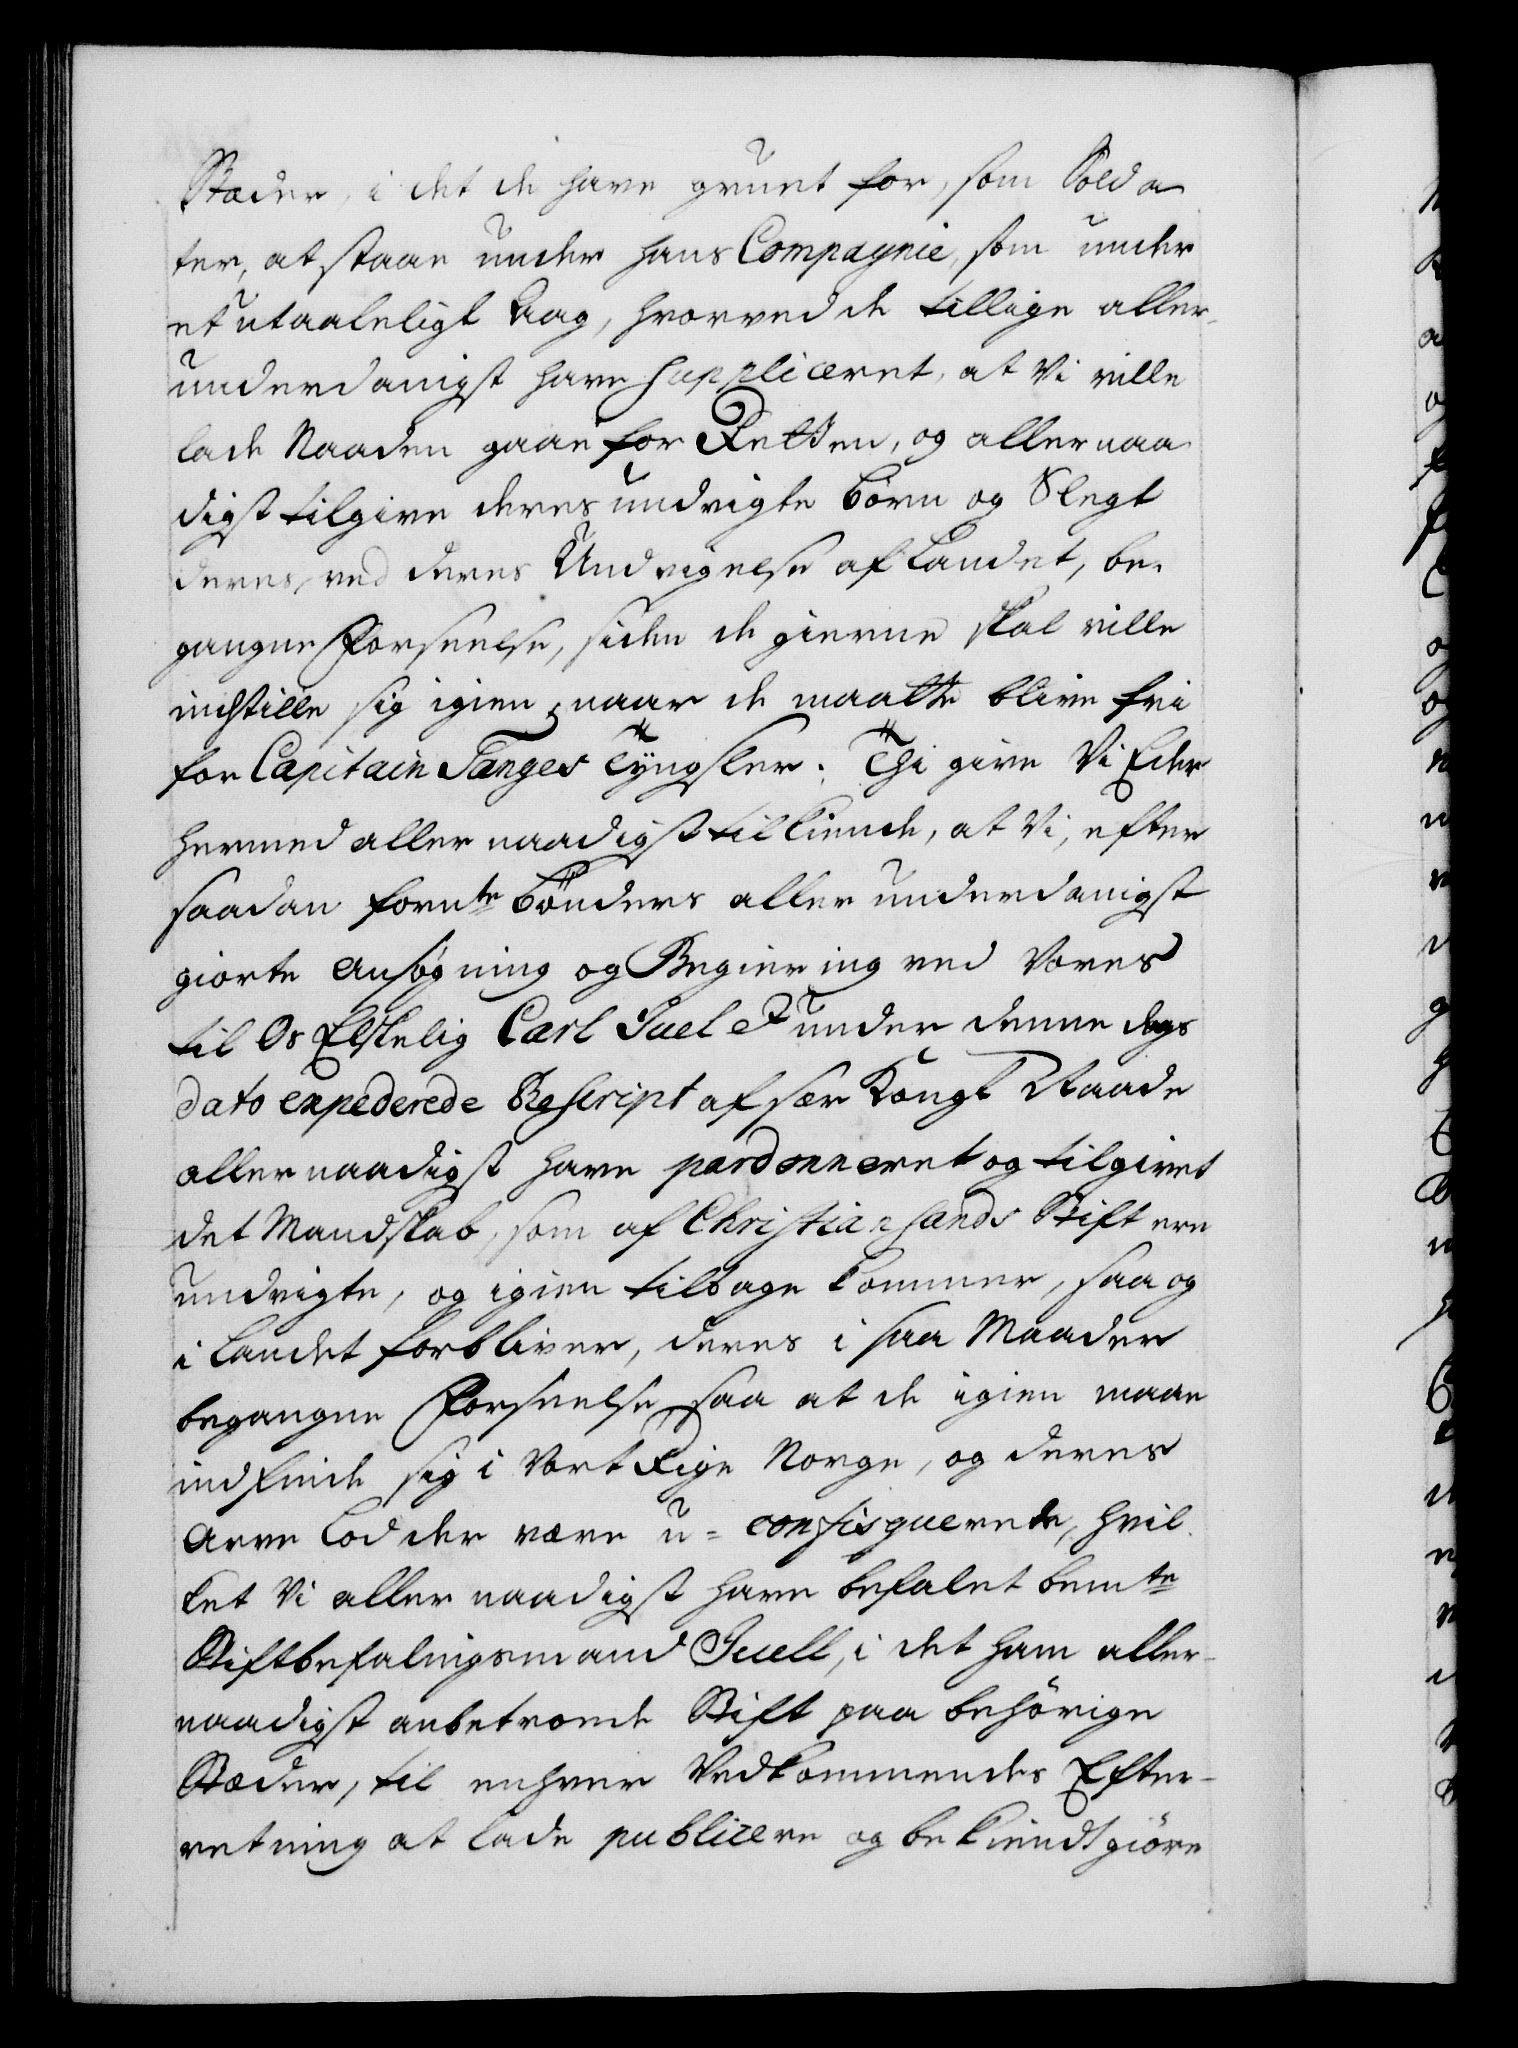 Stæder, i det de have gruet for, som Solda
ter, at staae under hans Compagnie, som under
et utaaleligt Aag, hvorved de tillige aller-
underdanigst have suppliceret, at Vi ville
lade Naaden gaae for Retten, og allernaa
digst tilgive deres undvigte børn og Slegt
deres, ved deres Undvigelse af Landet, be-
gangne Forseelse, siden de gierne skal ville
indstille sig igien, naar de maatte blive fri
for Capitain Tanges Tyngsler. Thi give Vi Eder
hermed allernaadigst tilkiende, at Vi, efter
saadan fornte bönders allerunderdanigst
giorte Ansøgning og Begiering ved Vores
til Os Elskelig Carl Juel & under denne dags
dato expederede Rescript af sær Kongl Naade
allernaadigst have pardonneret og tilgivet
det Mandskab, som af Christiansands Stift ere
undvigte, og igien tilbage kommer, saa og
i Landet forbliver, deres i saa Maader
begangne Forseelse saa at de igien maae
indfinde sig i Vort Rige Norge, og deres
Arve Lodder være u=confisquerede, hvil
ket Vi allernaadigst have befalet bemte
Stiftbefalingsmand Juell, i det ham aller-
naadigst anbetroede Stift paa behörige
Stæder, til enhver Vedkommendes Efter-
retning at lade publicere og bekiendtgiöre